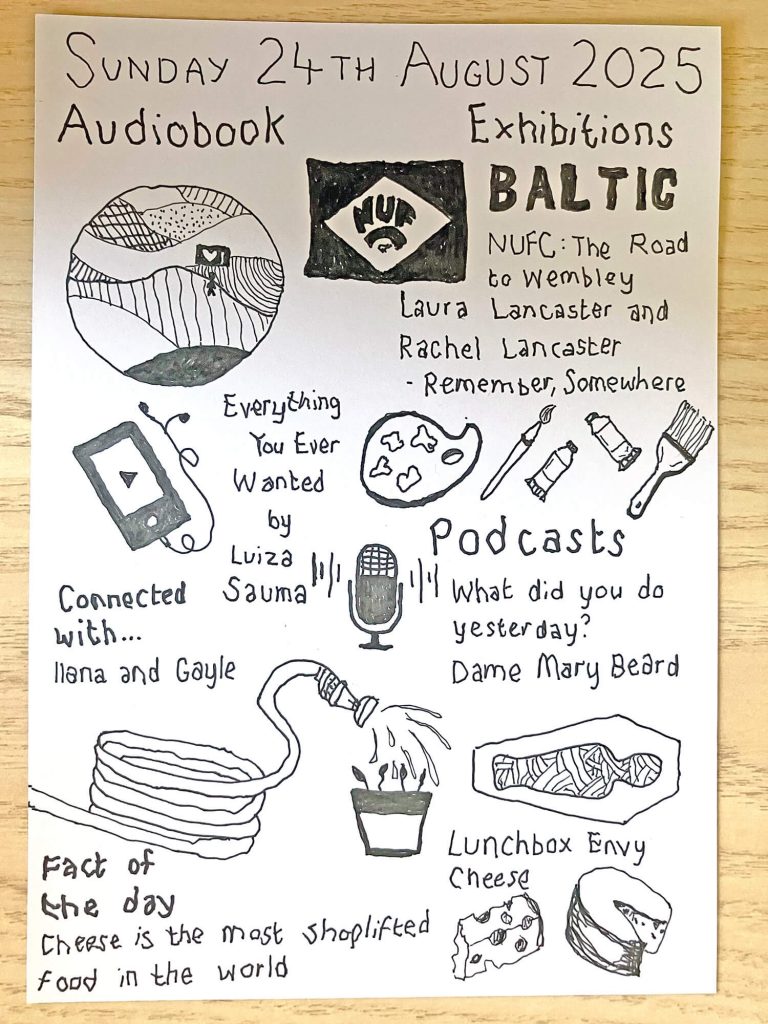 SUNDAY 24TH AUGUST 2025
Audiobook
Exhibitions
BALTIC
NUF
NUFC: The Road
to Wembley
Laura Lancaster and
Rachel Lancaster
- Remember, Somewhere
Everything
You Ever
Wanted
by
Luiza
Sauma
Podcasts
What did you do
yesterday?
Dame Mary Beard
Connected
with...
Ilana and Gayle
Lunchbox Envy
Cheese
Fact of
the day
Cheese is the most shoplifted
food in the world